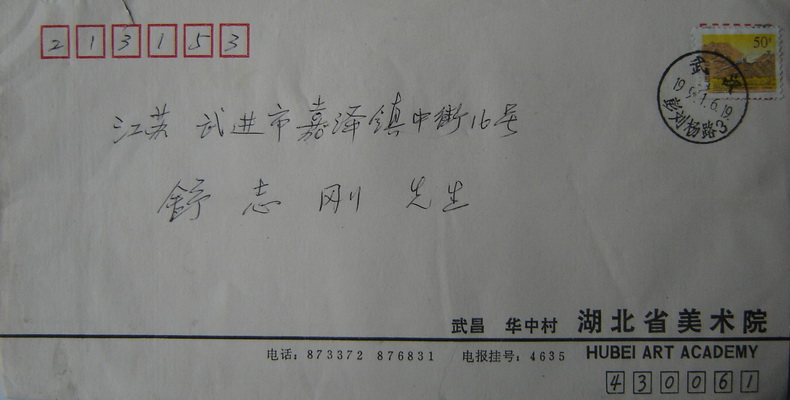 213153
50
武
彭刘杨路3
江苏 武进市嘉泽镇中街16号
舒志刚 先生
武昌 华中村 湖北省美术院
电话：873372 876831 电报挂号：4635 HUBEI ART ACADEMY
430061